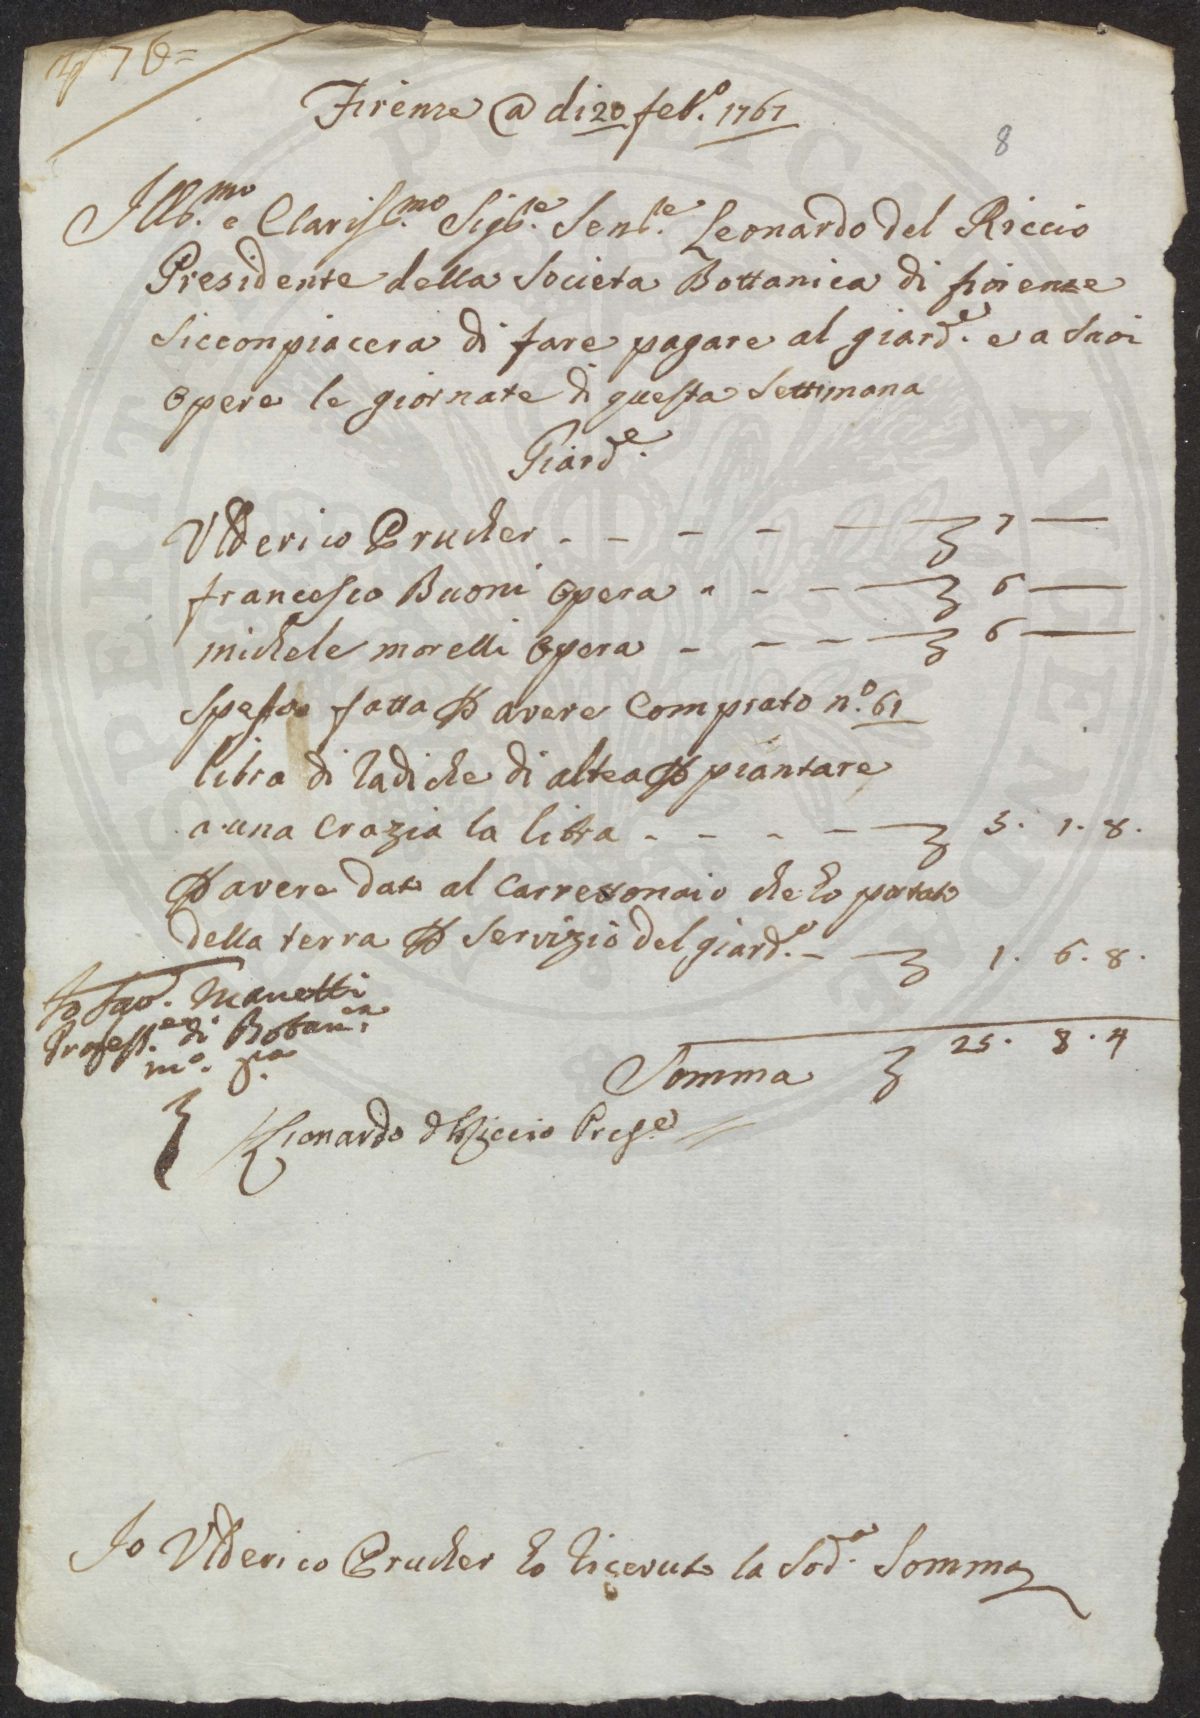 76=
Firenze @ di 20 feb.º 1767
8
Ill.mo e Clariss.mo Sig.re Sen.re Leonardo del Riccio
Presidente della Societa Bottanica di fiorenze
Siccompiacera di fare pagare al giard.e e a suoi
opere le giornate di questa settimana
Giard.e
Ulderico Prucher - - - - — 7 —
francesco Buoni opera - - - — 6 —
michele morelli opera - - - — 6 —
spesa fatta p avere Comprato n.º 61
libra di radiche di altea p piantare
a una Crazia la libra - - - - — 5. 1. 8.
p avere dato al Carrettonaio che ho portato
della terra p servizio del giard.o - — 1. 6. 8.
Manetti
Profess.e di Botan.ca
m.º p.a
Somma 25. 8. 4
Lionardo d Riccio Pres.e
Io Ulderico Prucher ho riceuto la Sod.a Somma